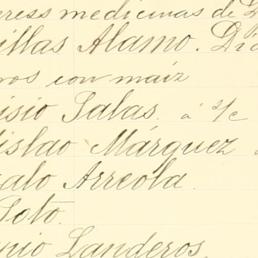 ress medicinas de L
illas Alamo. Dro
ros con maiz
isio Salas. á s/c
islao Márquez
zalo Arreola.
Soto.
nio Landeros.